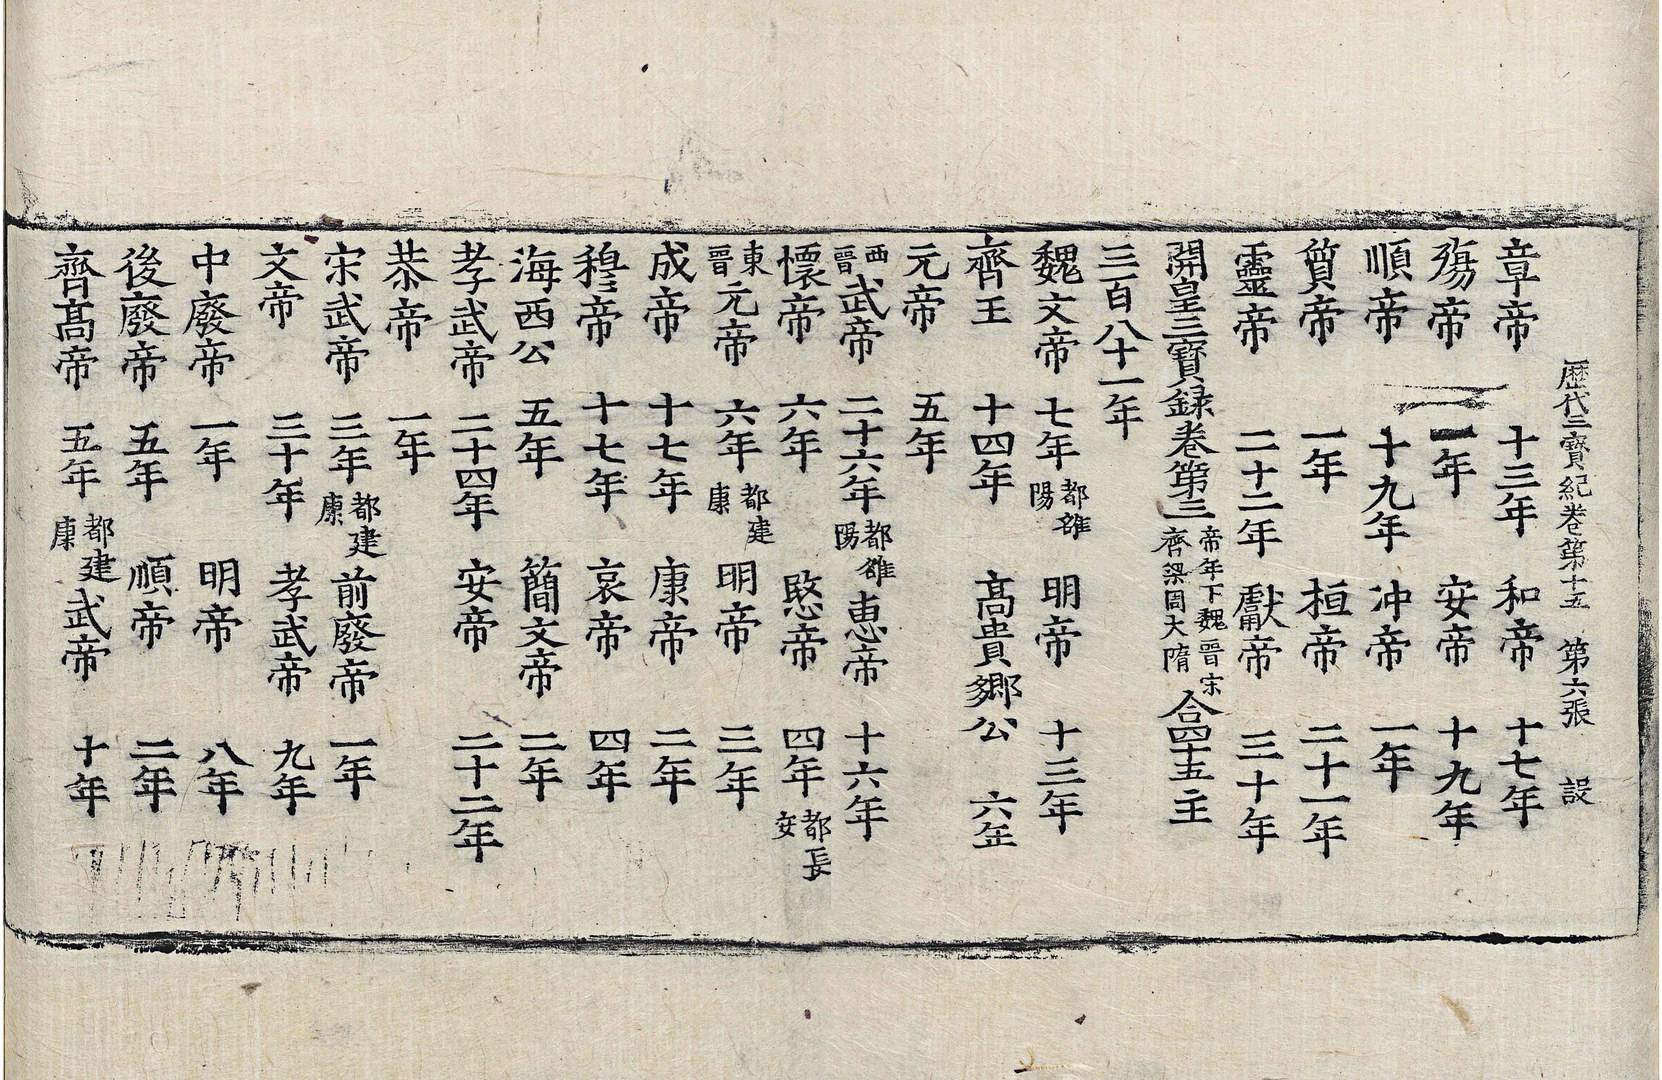 歷代三寶紀卷第十五　第六張　設
章帝　十三年　和帝　十七年
殤帝　一年　安帝　十九年
順帝　十九年　冲帝　一年
質帝　一年　桓帝　二十一年
靈帝　二十二年　獻帝　三十年
開皇三寶録卷第三帝年下魏晋宋齊梁周大隋合四十五主
三百八十一年
魏文帝　七年都雒陽　明帝　十三年
齊王　十四年　髙貴郷公　六年
元帝　五年
西晋武帝　二十六年都雒陽惠帝　十六年
懷帝　六年　愍帝　四年都長安
東晋元帝　六年都建康　明帝　三年
成帝　十七年　康帝　二年
穆帝　十七年　哀帝　四年
海西公　五年　簡文帝　二年
孝武帝　二十四年　安帝　二十二年
恭帝　一年
宋武帝　三年都建康　前廢帝　一年
文帝　三十年　孝武帝　九年
中廢帝　一年　明帝　八年
後廢帝　五年　順帝　二年
齊髙帝　五年都建康　武帝　十年